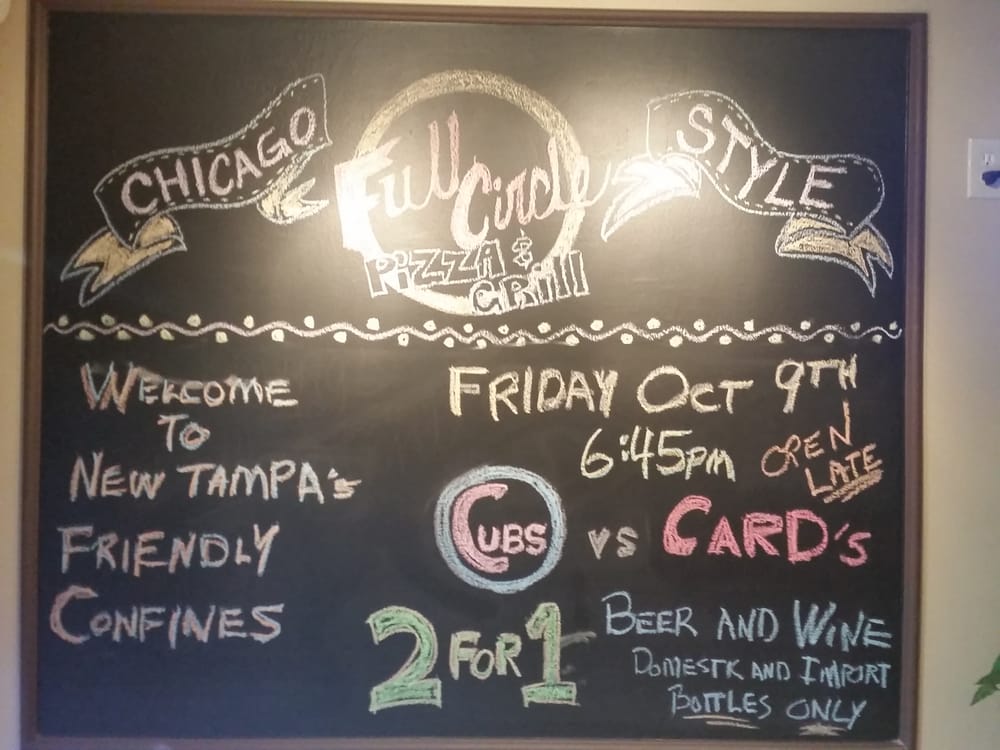 CHICAGO
Full Circle
PiZZA &
GRill
STYLE
WELCOME
TO
NEW TAMPA's
FRIENDLY
CONFINES
FRIDAY OCT 9TH
6:45pm
OPEN
LATE
CUBS vs CARD's
2 FOR 1
BEER AND WINE
DOMESTIC AND IMPORT
BOTTLES ONLY